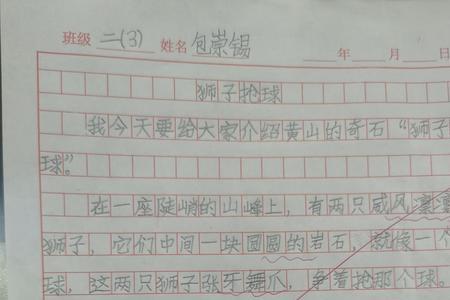 班级 二(3) 姓名 包崇锡 年 月 日
狮子抢球
我今天要给大家介绍黄山的奇石“狮子
球”。
在一座陡峭的山峰上，有两只威风凛凛
狮子，它们中间一块圆圆的岩石，就像一个
球，这两只狮子张牙舞爪，争着抢那个球。